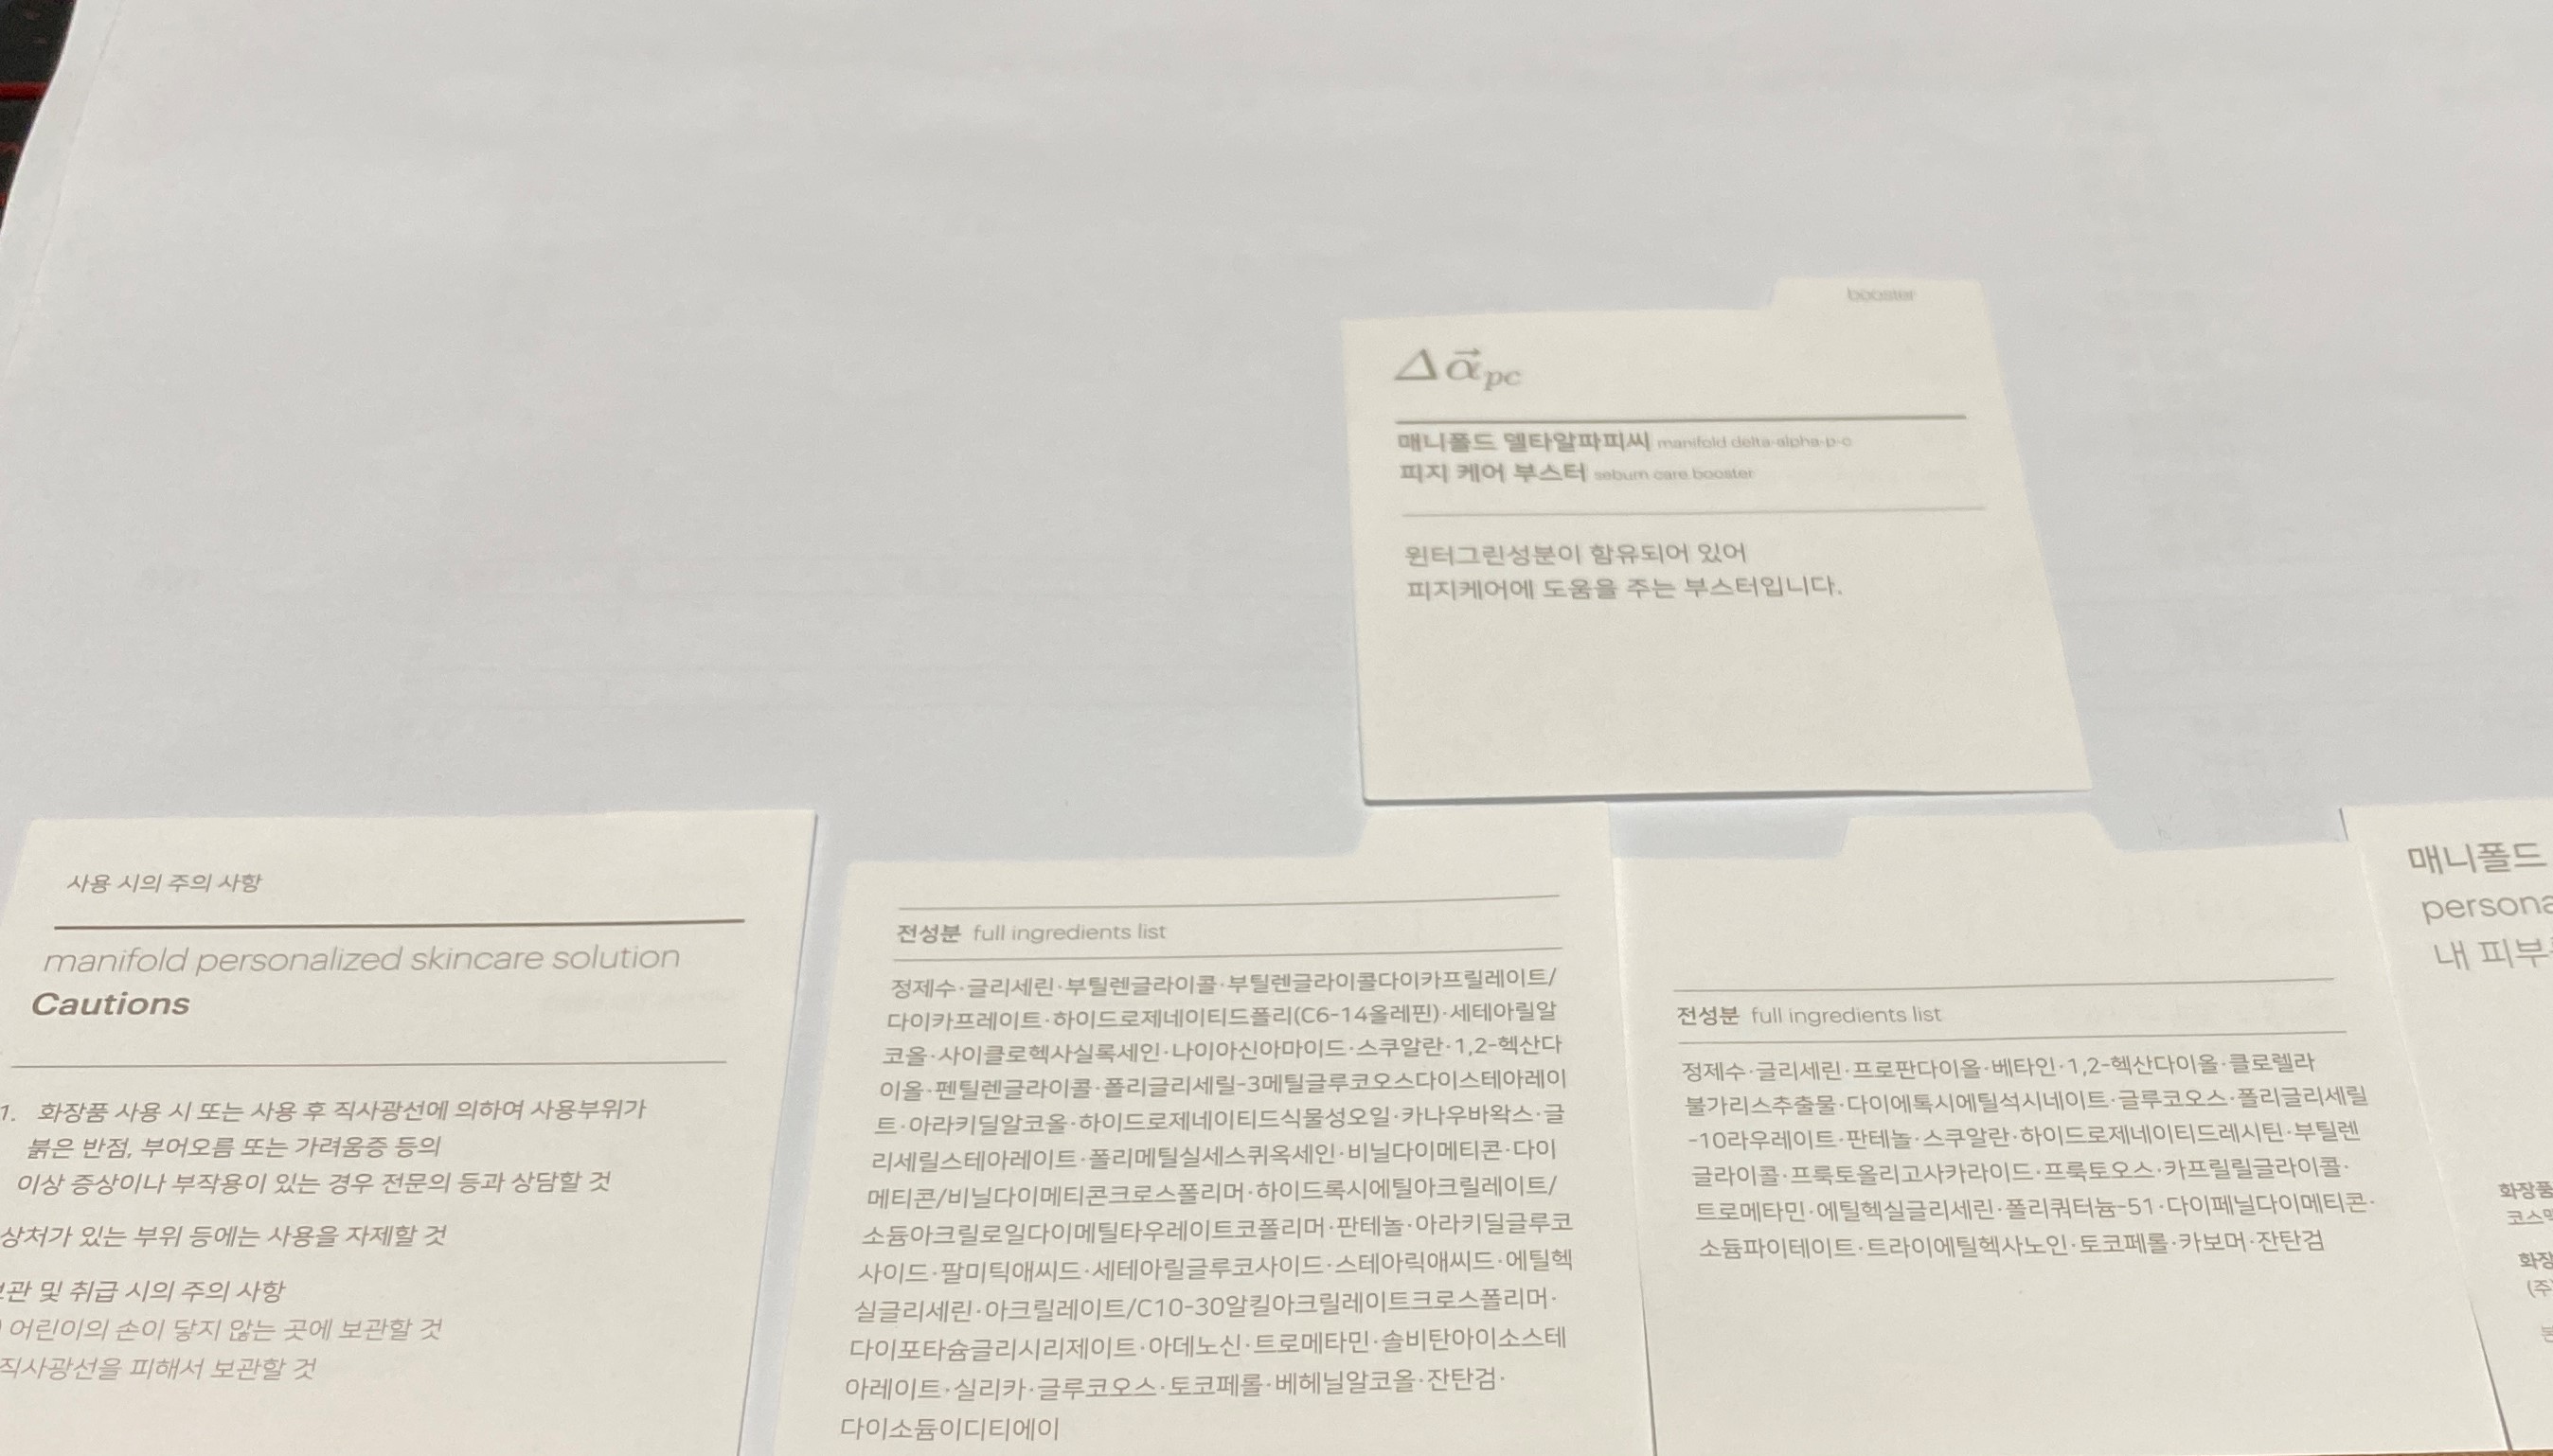 booster
Δα⃗pc
매니폴드 델타알파피씨 manifold delta-alpha-p-c
피지 케어 부스터 sebum care booster
윈터그린성분이 함유되어 있어
피지케어에 도움을 주는 부스터입니다.
사용 시의 주의 사항
manifold personalized skincare solution
Cautions
1. 화장품 사용 시 또는 사용 후 직사광선에 의하여 사용부위가
붉은 반점, 부어오름 또는 가려움증 등의
이상 증상이나 부작용이 있는 경우 전문의 등과 상담할 것
상처가 있는 부위 등에는 사용을 자제할 것
및 취급 시의 주의 사항
어린이의 손이 닿지 않는 곳에 보관할 것
직사광선을 피해서 보관할 것
전성분 full ingredients list
정제수·글리세린·부틸렌글라이콜·부틸렌글라이콜다이카프릴레이트/
다이카프레이트·하이드로제네이티드폴리(C6-14올레핀)·세테아릴알
코올·사이클로헥사실록세인·나이아신아마이드·스쿠알란·1,2-헥산다
이올·펜틸렌글라이콜·폴리글리세릴-3메틸글루코오스다이스테아레이
트·아라키딜알코올·하이드로제네이티드식물성오일·카나우바왁스·글
리세릴스테아레이트·폴리메틸실세스퀴옥세인·비닐다이메티콘·다이
메티콘/비닐다이메티콘크로스폴리머·하이드록시에틸아크릴레이트/
소듐아크릴로일다이메틸타우레이트코폴리머·판테놀·아라키딜글루코
사이드·팔미틱애씨드·세테아릴글루코사이드·스테아릭애씨드·에틸헥
실글리세린·아크릴레이트/C10-30알킬아크릴레이트크로스폴리머·
다이포타슘글리시리제이트·아데노신·트로메타민·솔비탄아이소스테
아레이트·실리카·글루코오스·토코페롤·베헤닐알코올·잔탄검·
다이소듐이디티에이
전성분 full ingredients list
정제수·글리세린·프로판다이올·베타인·1,2-헥산다이올·클로렐라
불가리스추출물·다이에톡시에틸석시네이트·글루코오스·폴리글리세릴
-10라우레이트·판테놀·스쿠알란·하이드로제네이티드레시틴·부틸렌
글라이콜·프룩토올리고사카라이드·프룩토오스·카프릴릴글라이콜·
트로메타민·에틸헥실글리세린·폴리쿼터늄-51·다이페닐다이메티콘·
소듐파이테이트·트라이에틸헥사노인·토코페롤·카보머·잔탄검
매니폴드
persona
내 피부
화장품
코스맥
화장
(주